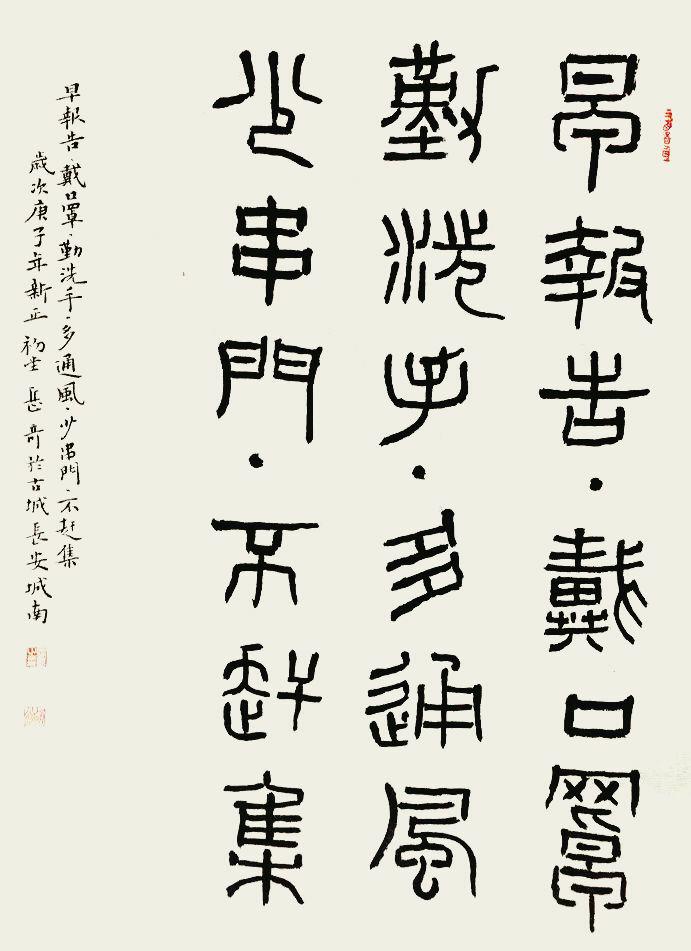 早報告·戴口罩
勤洗手·多通風
少串門·不赶集
早報告·戴口罩·勤洗手·多通風·少串門·不赶集
歲次庚子年新正初六岳奇於古城長安城南